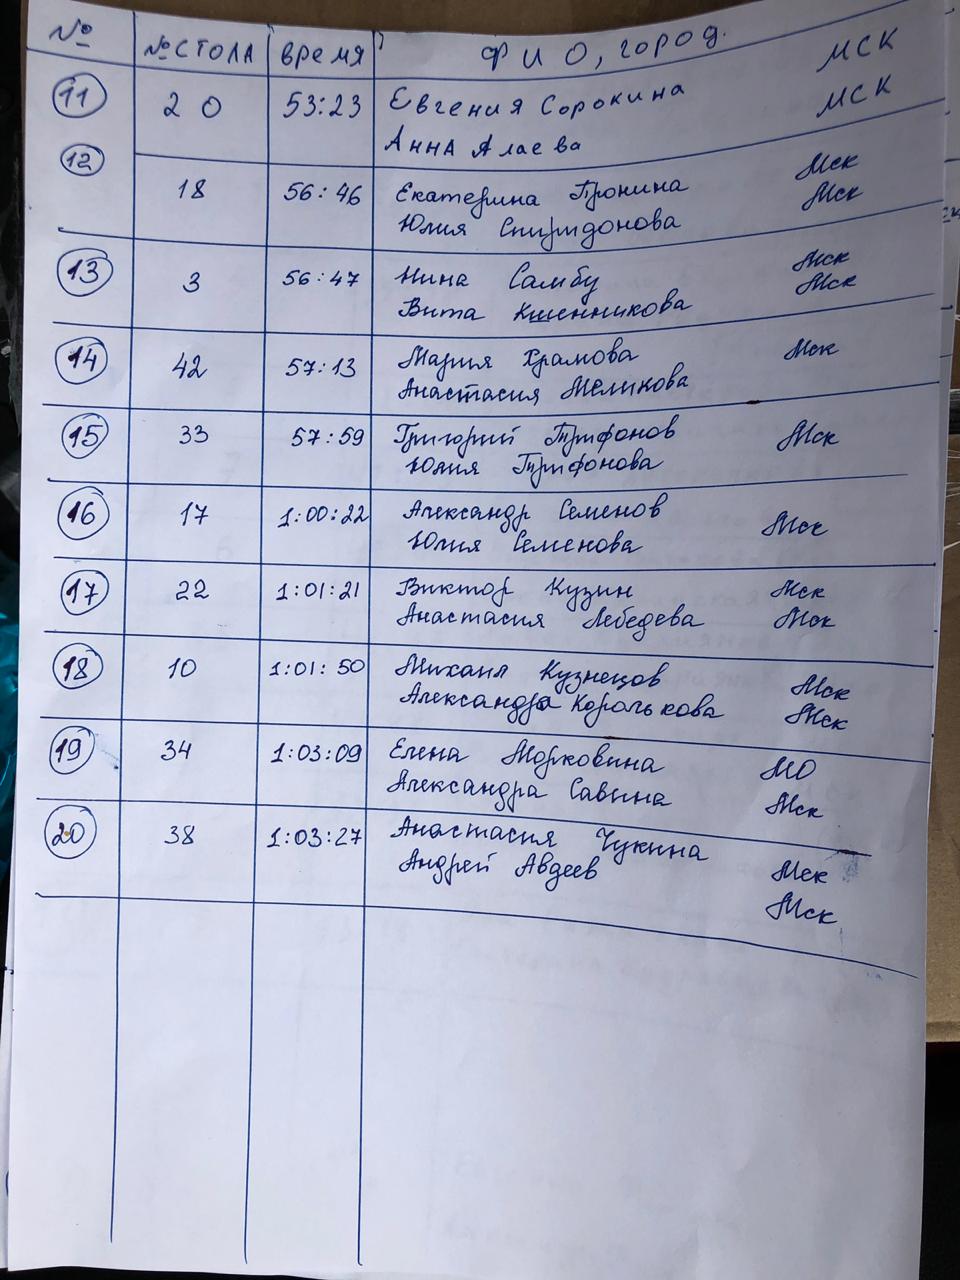 № № СТОЛА ВРЕМЯ ФИО, город.
11 20 53:23 Евгения Сорокина МСК
Анна Алаева МСК
12 18 56:46 Екатерина Пронина Мск
Юлия Спиридонова Мск
13 3 56:47 Нина Самбу Мск
Вита Кшенникова Мск
14 42 57:13 Мария Храмова Мск
Анастасия Меликова
15 33 57:59 Григорий Трифонов Мск
Юлия Трифонова
16 17 1:00:22 Александр Семенов Мск
Юлия Семенова
17 22 1:01:21 Виктор Кузин Мск
Анастасия Лебедева Мск
18 10 1:01:50 Михаил Кузнецов Мск
Александра Королькова Мск
19 34 1:03:09 Елена Морковина МО
Александра Савина Мск
20 38 1:03:27 Анастасия Чукина Мск
Андрей Авдеев Мск